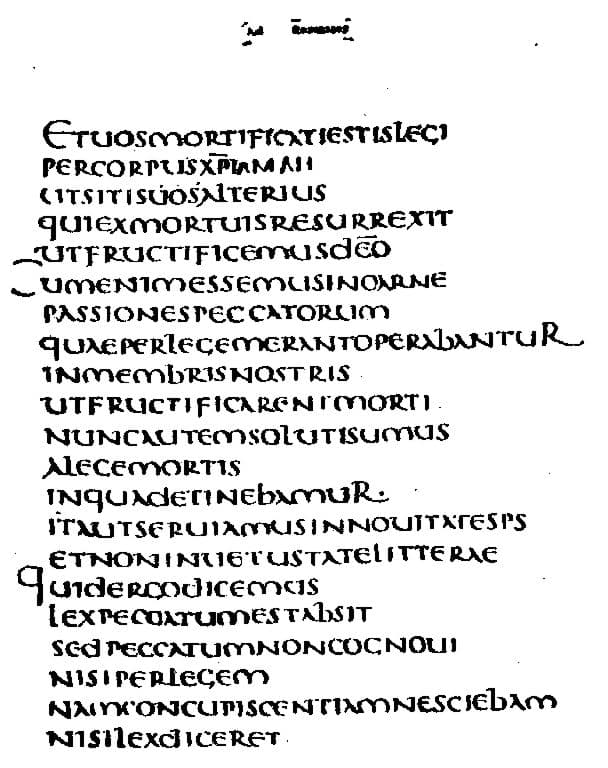 Ad Romanos
ETUOSMORTIFICATIESTISLEGI
PERCORPUSXP̅I̅
UTSITISUOSALTERIUS
QUIEXMORTUISRESURREXIT
UTFRUCTIFICEMUSDE̅O
CUMENIMESSEMUSINCARNE
PASSIONESPECCATORUM
QUAEPERLEGEMERANTOPERABANTUR
INMEMBRISNOSTRIS
UTFRUCTIFICARENTMORTI
NUNCAUTEMSOLUTISUMUS
ALEGEMORTIS
INQUADETINEBAMUR.
ITAUTSERUIAMUSINNOUITATESPS
ETNONINUETUSTATELITTERAE
QUIDERGODICEMUS
LEXPECCATUMESTABSIT
SEDPECCATUMNONCOGNOUI
NISIPERLEGEM
NAMCONCUPISCENTIAMNESCIEBAM
NISILEXDICERET